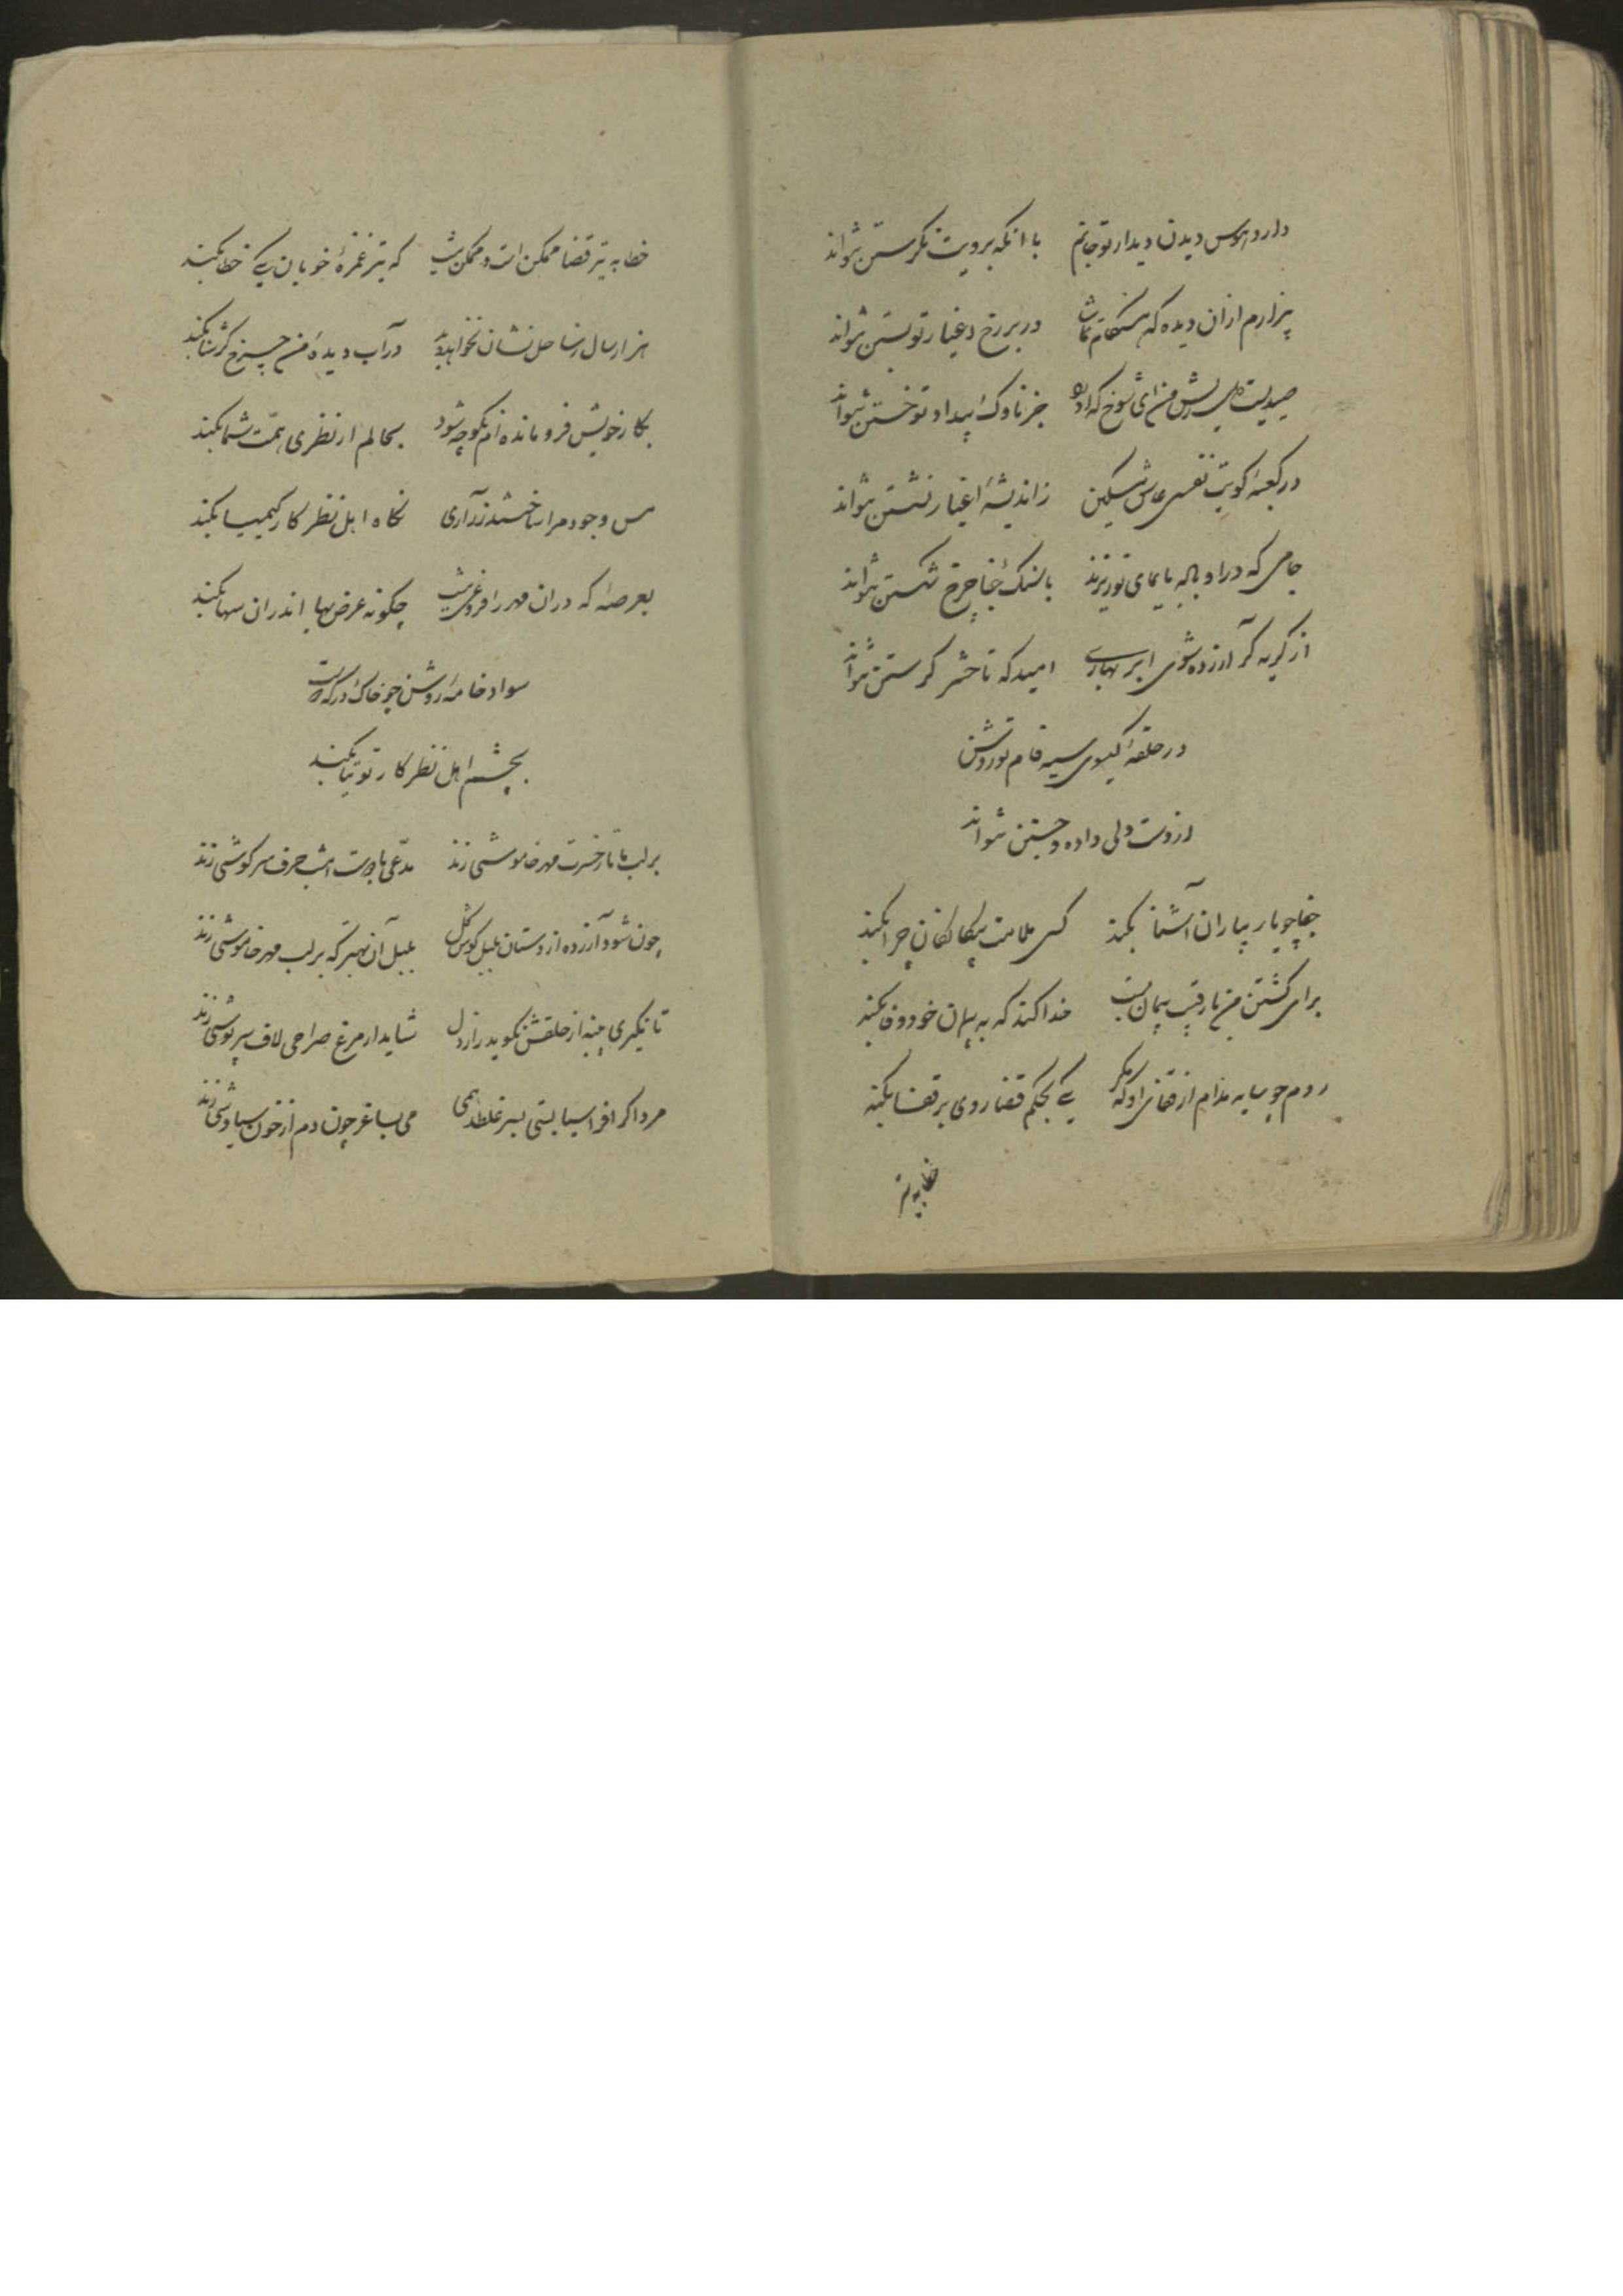 دارد هوس دیدن دیدار تو جانم با انکه برویت نکرستن نتواند
بیزارم ازان دیده که هنکام تماشا در بر رخ اغیار تو بستن نتواند
صیدیست دل ریش من ای شوخ که او را جز ناوک بیداد تو خستن نتواند
در کعبهٔ کویت نفسی عاشق مسکین ز اندیشهٔ اغیار نشستن نتواند
جامی که در او باده بایمای تو ریزند با سنک جفا چرخ شکستن نتواند
از کریه کر آزرده شوی ابر بهاری امید که تا حشر کرستن نتواند
در حلقهٔ کیسوی سیه فام تو روشن
از دست دلی داده و جستن نتواند
جفا چو یار بیاران آشنا نکند کسی ملامت بیکانکان چرا نکند
برای کشتن من با رقیب پیمان بست خدا کند که به پیمان خود وفا نکند
روم چو سایه مدام از قفای او که مکر یکی بحکم قضا روی بر قفا نکند
خطا به تیر
خطا به تیر قضا ممکن است و ممکن نیست که تیر غمزهٔ خوبان یکی خطا نکند
هزار سال ز ساحل نشان نخواهد دید در آب دیدهٔ من چرخ کر شنا نکند
بکار خویش فرو مانده ام نکو چه شود بحالم ار نظری همت شما نکند
مس وجود مرا ساختند زر آری نکاه اهل نظر کار کیمیا نکند
بعرصهٔ که در ان مهر را فروغی نیست چکونه عرض بها اندران سها نکند
سواد خامهٔ روشن چو خاک درکه دوست
بچشم اهل نظر کار توتیا نکند
بر لب ما تا ز حسرت مهر خاموشی زند مدعی با دوست امشب حرف سرکوشی زند
چون شود آزرده از دستان بلبل کوش کل بلبل آن بهتر که بر لب مهر خاموشی زند
تا نکیری پنبه از حلقش نکوید راز دل شاید ار مرغ صراحی لاف سرپوشی زند
مرد اکر افراسیابستی بسر غلطد همی می بساغر چون دم از خون سیاوشی زند